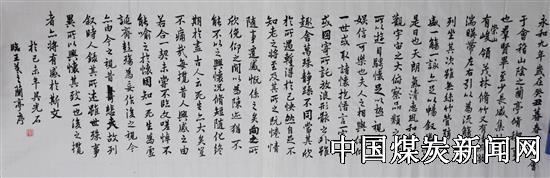 永和九年歲在癸丑暮春會
于會稽山陰之蘭亭脩禊
也群賢畢至少長咸集
有崇山峻領茂林脩竹又有
湍暎帶左右引以為流觴
列坐其次雖無絲竹管弦
盛一觴一詠亦足以暢敘
是日也天朗氣清惠風和
觀宇宙之大俯察品類之
所以遊目騁懷足以極
娛信可樂也夫人之相與
一世或取諸懷抱悟言一
或因寄所託放浪形骸之外雖
趣舍萬殊靜躁不同當其欣
於所遇暫得於己怏然自足不
知老之將至及其所之既倦情
隨事遷感慨係之矣向之所
欣俛仰之間以為陳迹猶不
能不以之興懷況脩短隨化終
期於盡古人云死生亦大矣豈
不痛哉每攬昔人興感之由
若合一契未嘗不臨文嗟悼不
能喻之於懷固知一死生為虛
誕齊彭殤為妄作後之視今
亦由今之視昔悲夫故列
敘時人錄其所述雖世殊事
異所以興懷其致一也後之攬
者亦將有感於斯文
於己未年吳光石
臨王羲之蘭亭序
中国煤炭新闻网